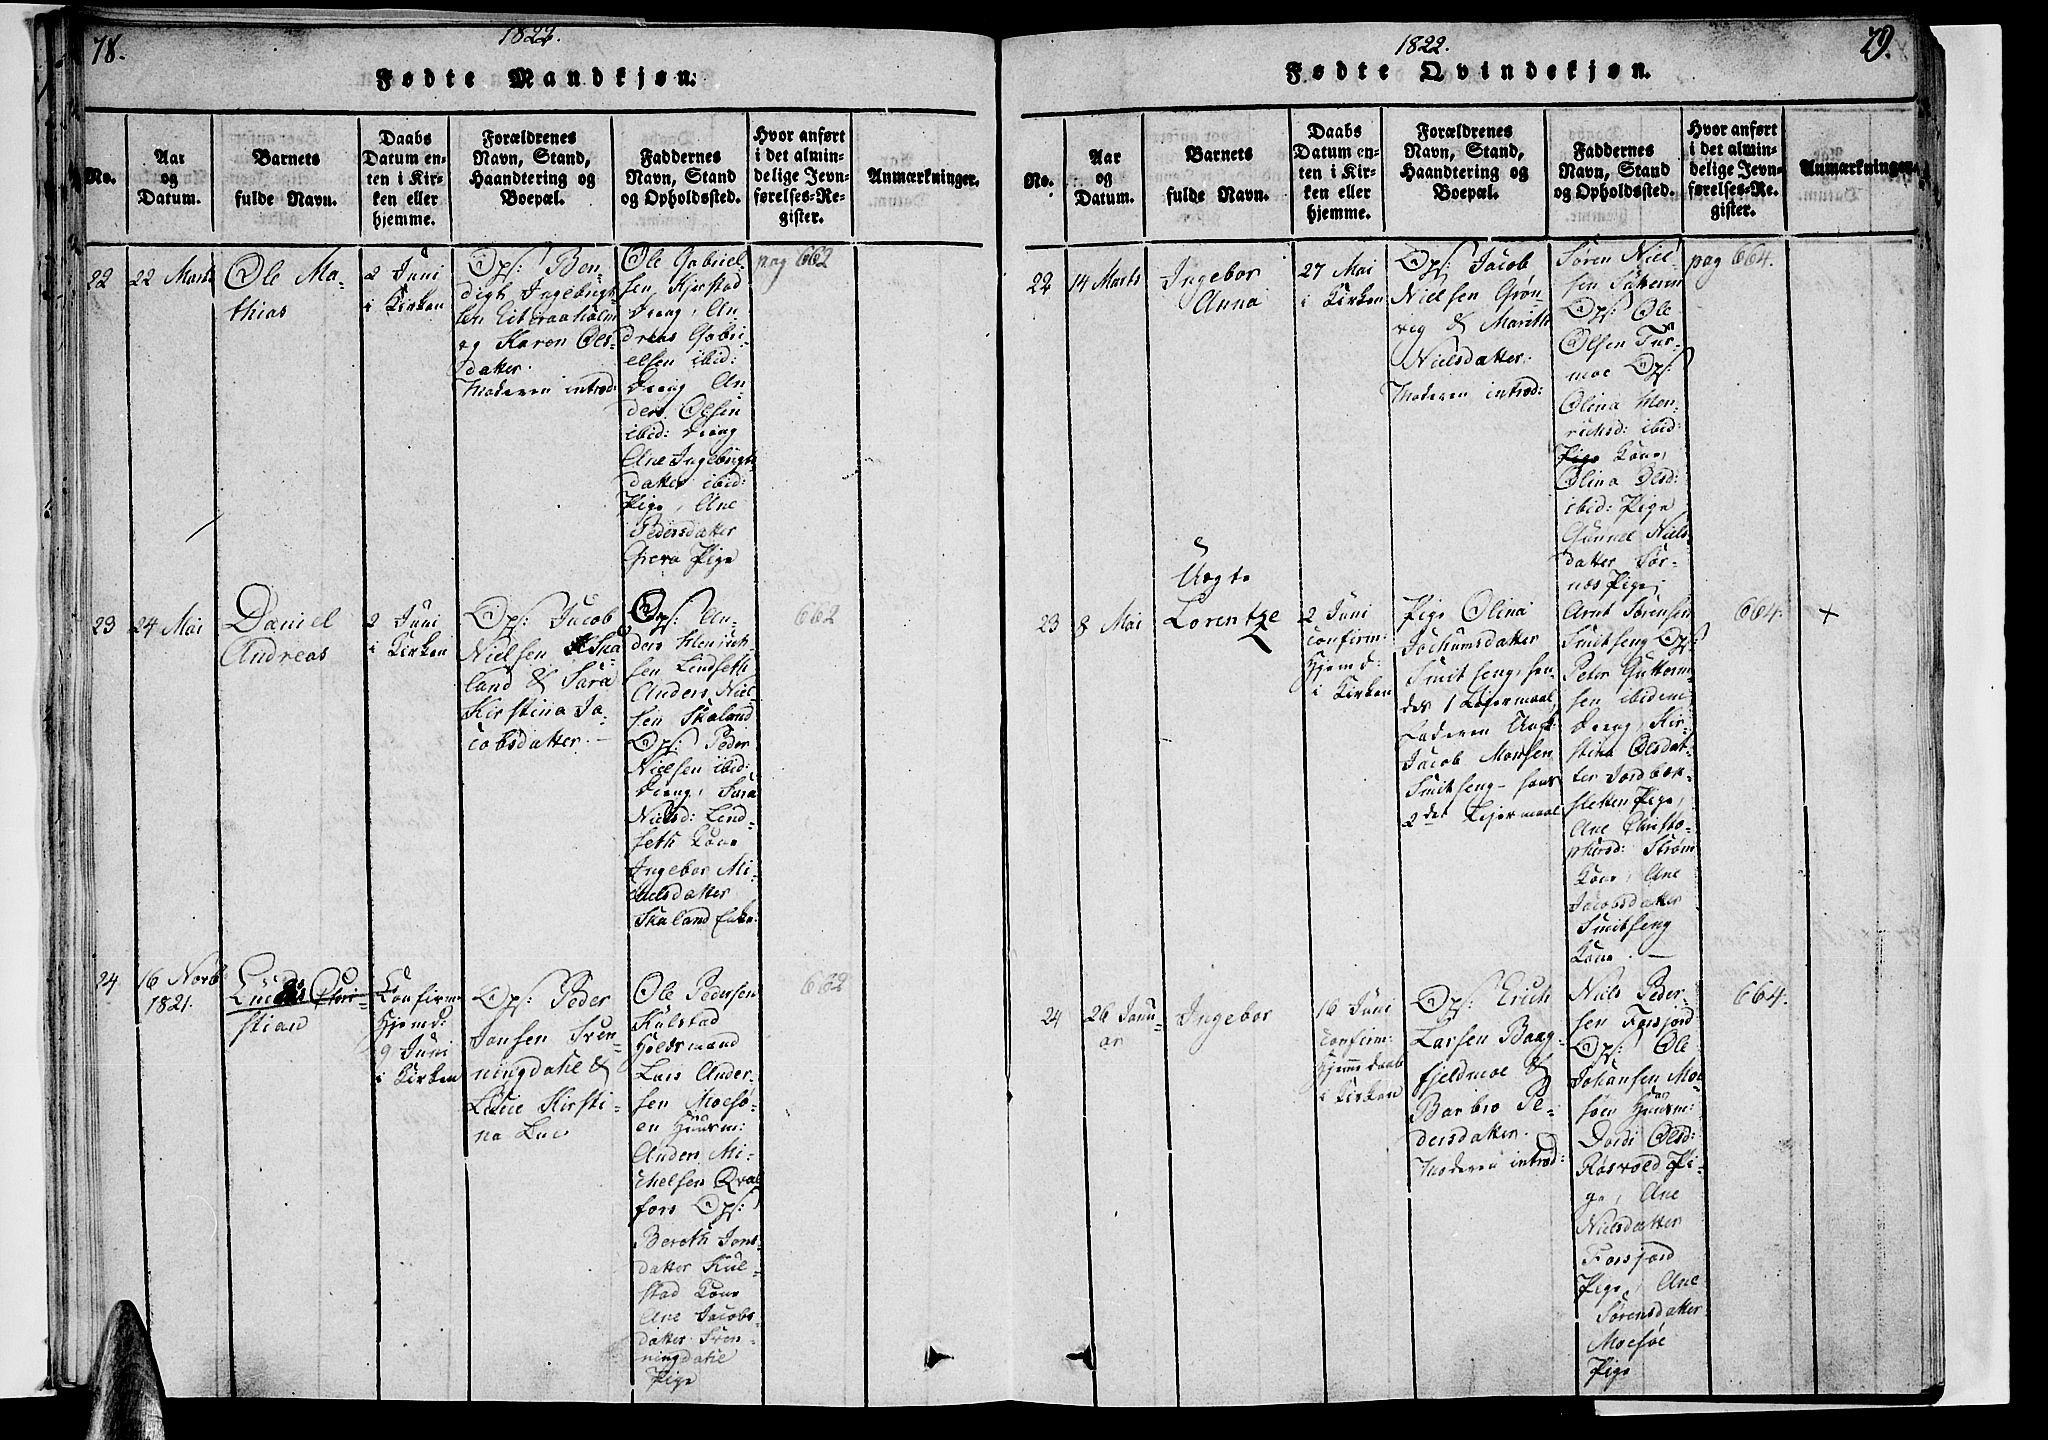 78.
1822.
Fødte Mandkjøn.
No.
Aar
og
Datum.
Barnets
fulde Navn.
Daabs
Datum en-
ten i Kir-
ken eller
hjemme.
Forældrenes
Navn, Stand,
Haandtering og
Boepæl.
Faddernes
Navn, Stand
og Opholdssted.
Hvor anført
i det almin-
delige Jevn-
førelses-Re-
gister.
Anmærkninger.
22
22 Marts
Ole Ma-
thias
2 Juni
i Kirken
Ops: Ben-
digt Ingebrigt-
sen
og Karen Ols-
datter.
Moderen introd:
Ole Gabriel-
sen Kjerstad
Dreng, An-
dreas Gabri-
elsen ibid:
Dreng An-
ders Olsen
ibid: Dreng
Ane Ingebrigts
datter ibid:
Pige, Ane
Pedersdatter
Pige
pag 662
23
24 Mai
Daniel
Andreas
2 Juni
i Kirken
Ops: Jacob
Nielsen Ska
land & Sara
Kirstina Ja-
cobsdatter. —
Ops: An-
ders Henrich-
sen Lindseth
Anders Niel-
sen Skaland
Ops: Peder
Nielsen ibid:
Dreng, Sara
Nielsd: Lind-
seth Kone
Ingebor Mi-
chelsdatter
Skaland Enke:
662
24
16 Novb
1821.
Chri-
stian
Confirm:
Hjemd:
9 Juni
i Kirken
Ops: Peder
Jonsen Sven-
ningdahl &
Lucie Kirsti-
na
Ole Pedersen
Kulstad
Lars Ander-
sen Moesø-
en Huusm:
Anders Mi-
chelsen Qval
fors Ops:
Bereth Jons-
datter Kul-
stad Kone
Ane Jacobs-
datter Sven-
ningdahl
Pige
662
79.
1822.
Fødte Qvindekjøn.
No.
Aar
og
Datum.
Barnets
fulde Navn.
Daabs
Datum en-
ten i Kir-
ken eller
hjemme.
Forældrenes
Navn, Stand,
Haandtering og
Boepæl.
Faddernes
Navn, Stand
og Opholdssted.
Hvor anført
i det almin-
delige Jevn-
førelses-Re-
gister.
Anmærkninger.
22
14 Marts
Ingebor
Anna
27 Mai
i Kirken
Ops: Jacob
Nielsen Grøn-
vig & Marith
Nielsdatter.
Moderen introd:
Søren Niel-
sen
Ops: Ole
Olsen Tur-
moe Ops:
Olina Hen-
richsd: ibid:
Pige Kone,
Olina Olsd:
ibid: Pige
Gunnel Niels
datter Sør-
næs Pige,
pag 664.
23
8 Mai
Uægte
Lorentze
2 Juni
Confirm:
Hjemd:
i Kirken
Pige Olina
Jochumsdatter
Smitseng, hen-
des 1 Leiermaal,
Faderen Unk:
Jacob Monsen
Smitseng – hans
2det Leiermaal
Arnt Sørensen
Smitseng Ops:
Peter Guttorm-
sen ibidem
Dreng, Kir-
stina Olsdat-
ter Jordbæk-
sletten Pige,
Ane Christo-
phersd: Strøm
Kone, Ane
Jacobsdatter
Smitseng
Kone. —
664.
+
24
26 Janu-
ar
Ingebor
16 Juni
Confirm:
Hjemmedaab
i Kirken
Ops: Erich
Larsen Baag-
fjeldmoe &
Barbro Pe-
dersdatter.
Moderen introd:
Niels Peder-
sen Forsjord
Ops: Ole
Johansen Moe
søen Huusm:
Dordi Olsd:
Røsvold Pi-
ge, Ane
Nielsdatter
Forsjord
Pige, Ane
Sørensdatter
Moesøe
Pige
664.